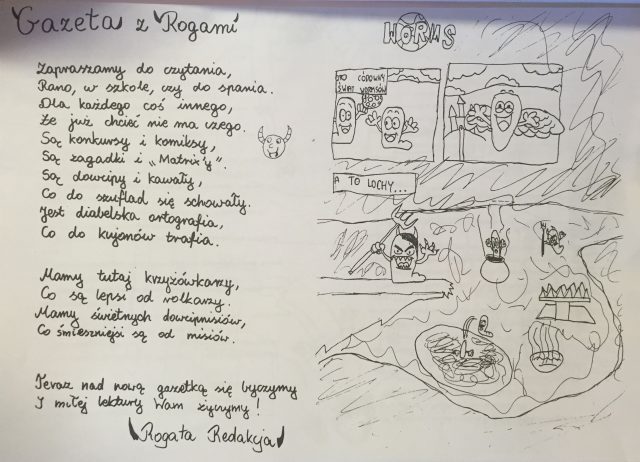 Gazeta z Rogami
Zapraszamy do czytania,
Rano, w szkole, czy do spania.
Dla każdego coś innego,
Że już chcieć nie ma czego.
Są konkursy i komiksy,
Są zagadki i „Matrixy”.
Są dowcipy i kawały,
Co do szuflad się schowały.
Jest diabelska ortografia,
Co do kujonów trafia.
Mamy tutaj krzyżówkarzy,
Co są lepsi od rolkarzy.
Mamy świetnych dowcipnisiów,
Co śmieszniejsi są od misiów.
Teraz nad nową gazetką się byczymy
I miłej lektury Wam życzymy!
Rogata Redakcja
WORMS
TO CUDOWNY
ŚWIAT WORMSÓW
A TO LOCHY...